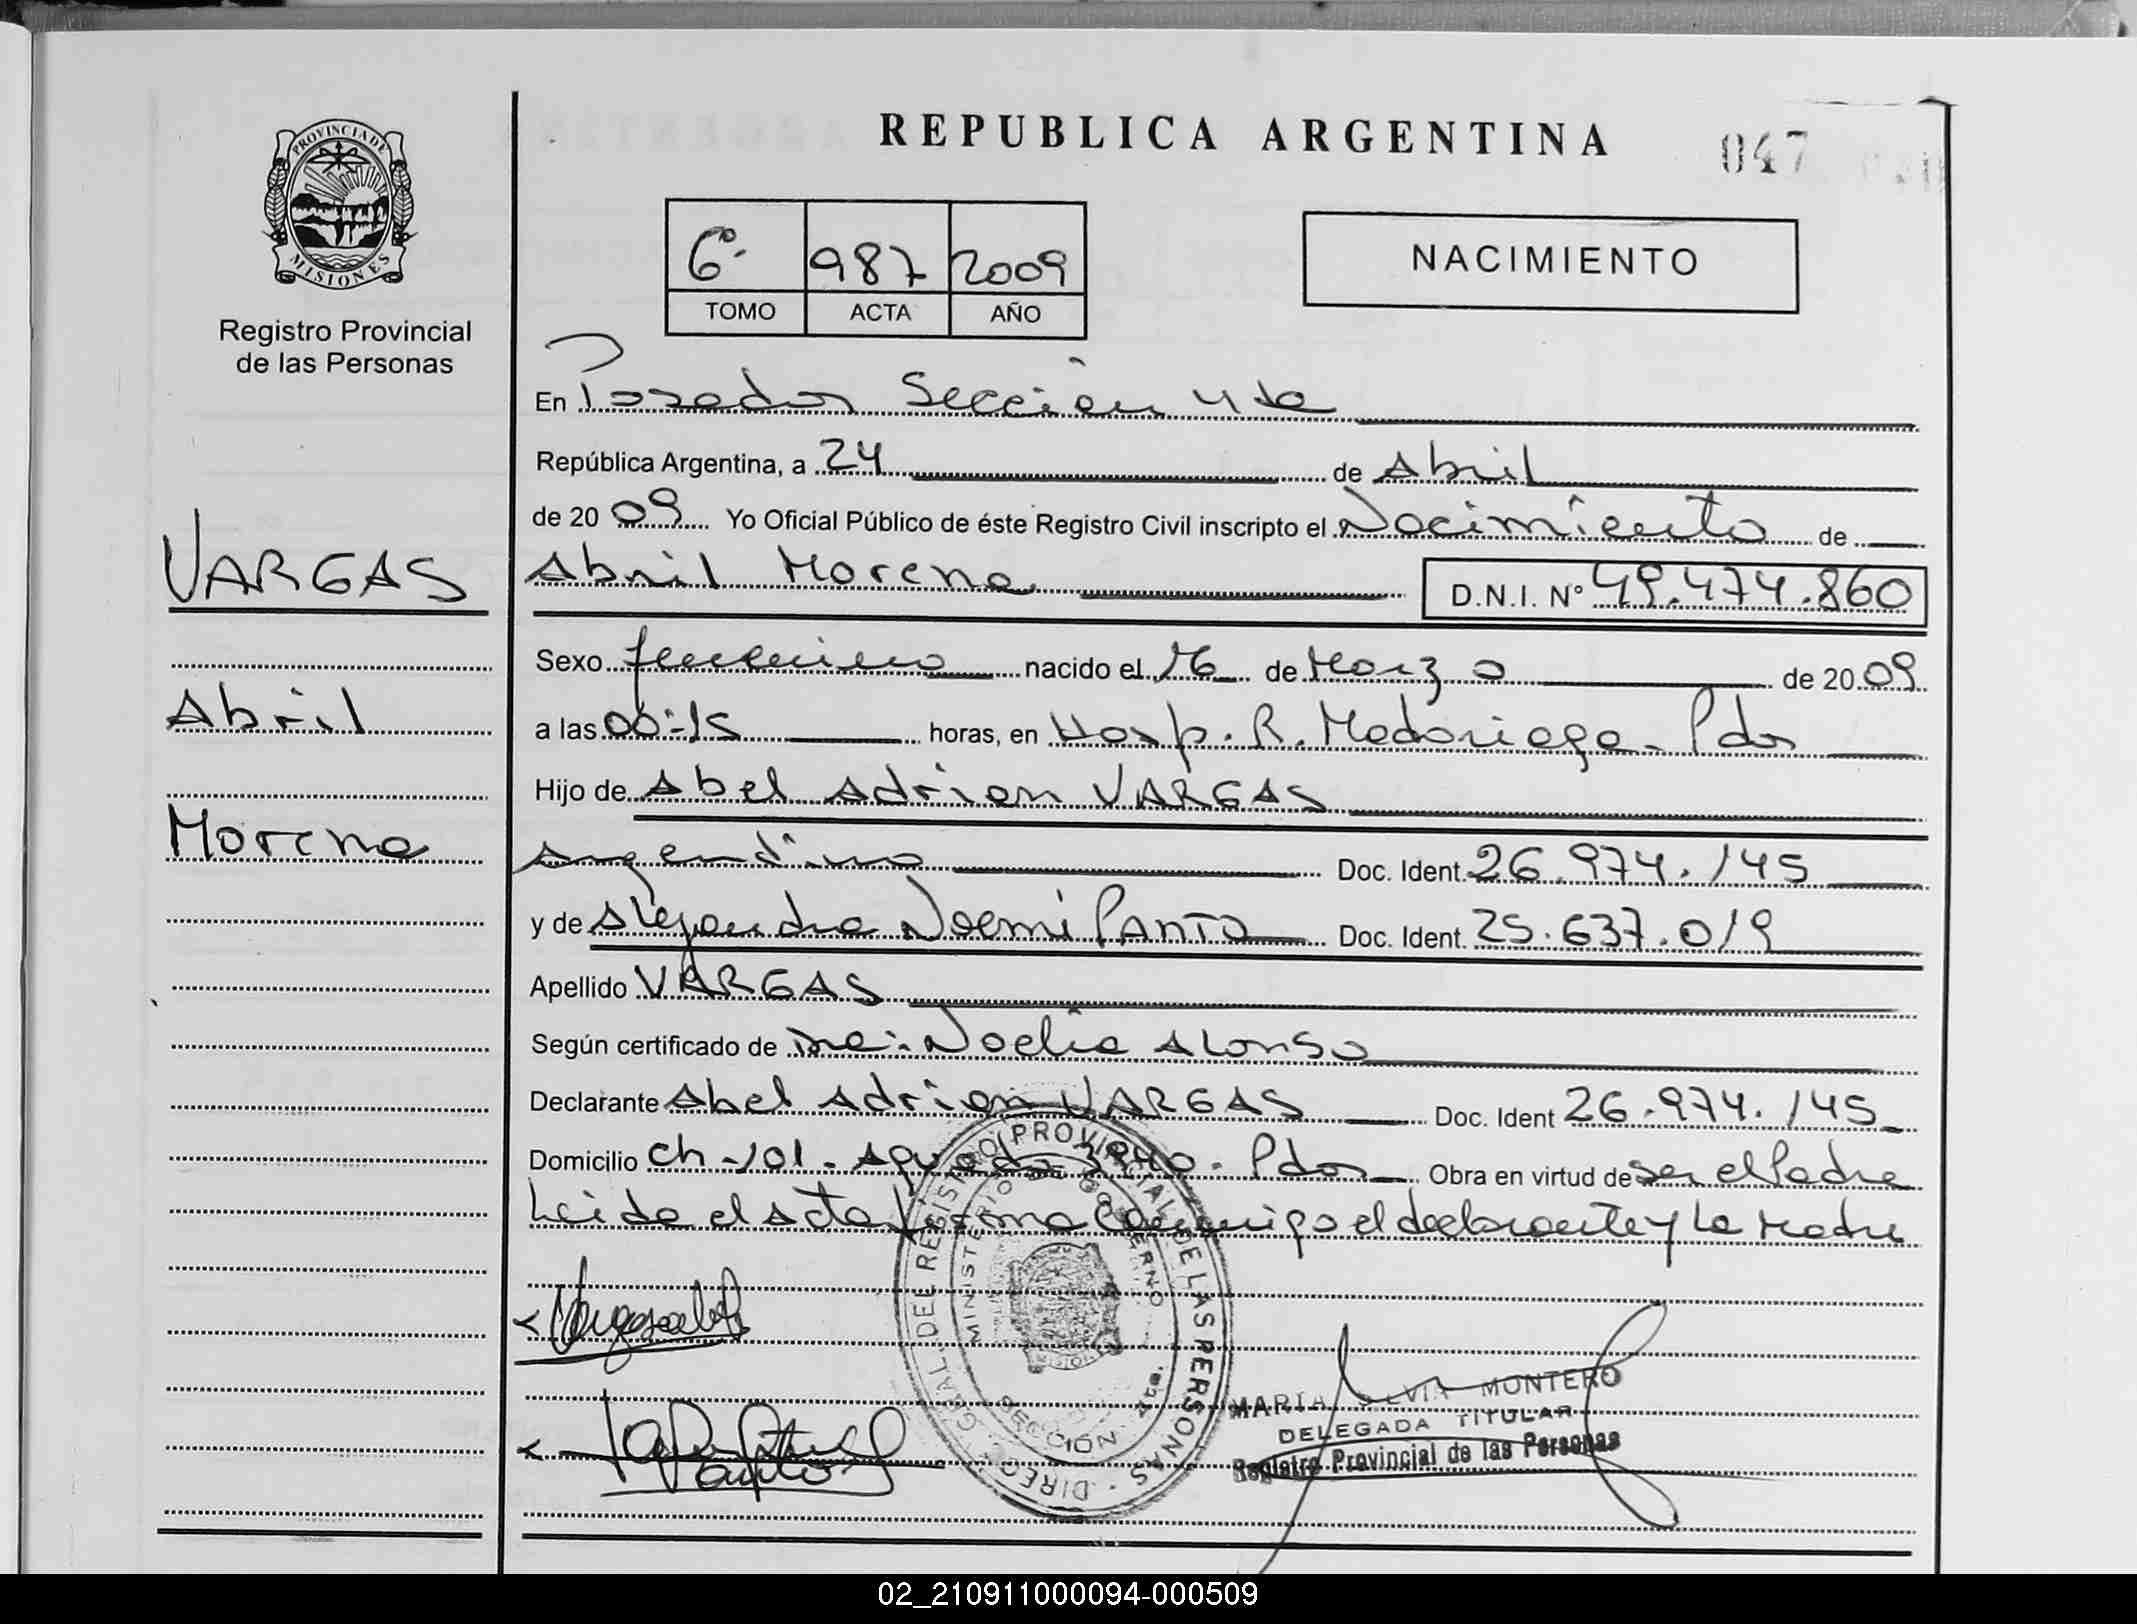 PROVINCIA DE
MISIONES
Registro Provincial
de las Personas
VARGAS
Abril
Morena
REPUBLICA ARGENTINA
047
6º 987 2009
TOMO ACTA AÑO
NACIMIENTO
En Posadas Sección 4ta
República Argentina, a 24 de Abril
de 2009 Yo Oficial Público de éste Registro Civil inscripto el Nacimiento de
Abril Morena D.N.I. Nº 49.474.860
Sexo femenino nacido el 16 de Marzo de 2009
a las 00:15 horas, en Hosp. R. Madariaga - Pdas
Hijo de Abel Adrian VARGAS
Argentina Doc. Ident. 26.974.145
y de Alejandra Noemi PANTO Doc. Ident. 25.637.019
Apellido VARGAS
Según certificado de Dra: Noelia Alonso
Declarante Abel Adrian VARGAS Doc. Ident 26.974.145
Domicilio Ch-101- 3940 - Pdas Obra en virtud de ser el Padre
Leida el Acta firma conmigo el declarante y la Madre
DIREC. GRAL. DEL REGISTRO PROVINCIAL DE LAS PERSONAS
MINISTERIO DE GOBIERNO
SECCIÓN 4ta.
MARIA SILVIA MONTERO
DELEGADA TITULAR
Registro Provincial de las Personas
02_210911000094-000509